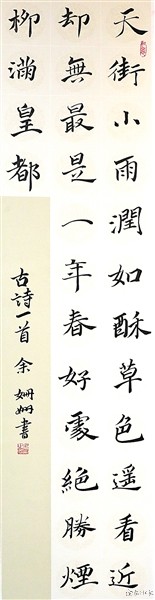 天街小雨潤如酥草色遥看近
却無最是一年春好處絶勝煙
柳滿皇都
古詩一首 余姗姗書